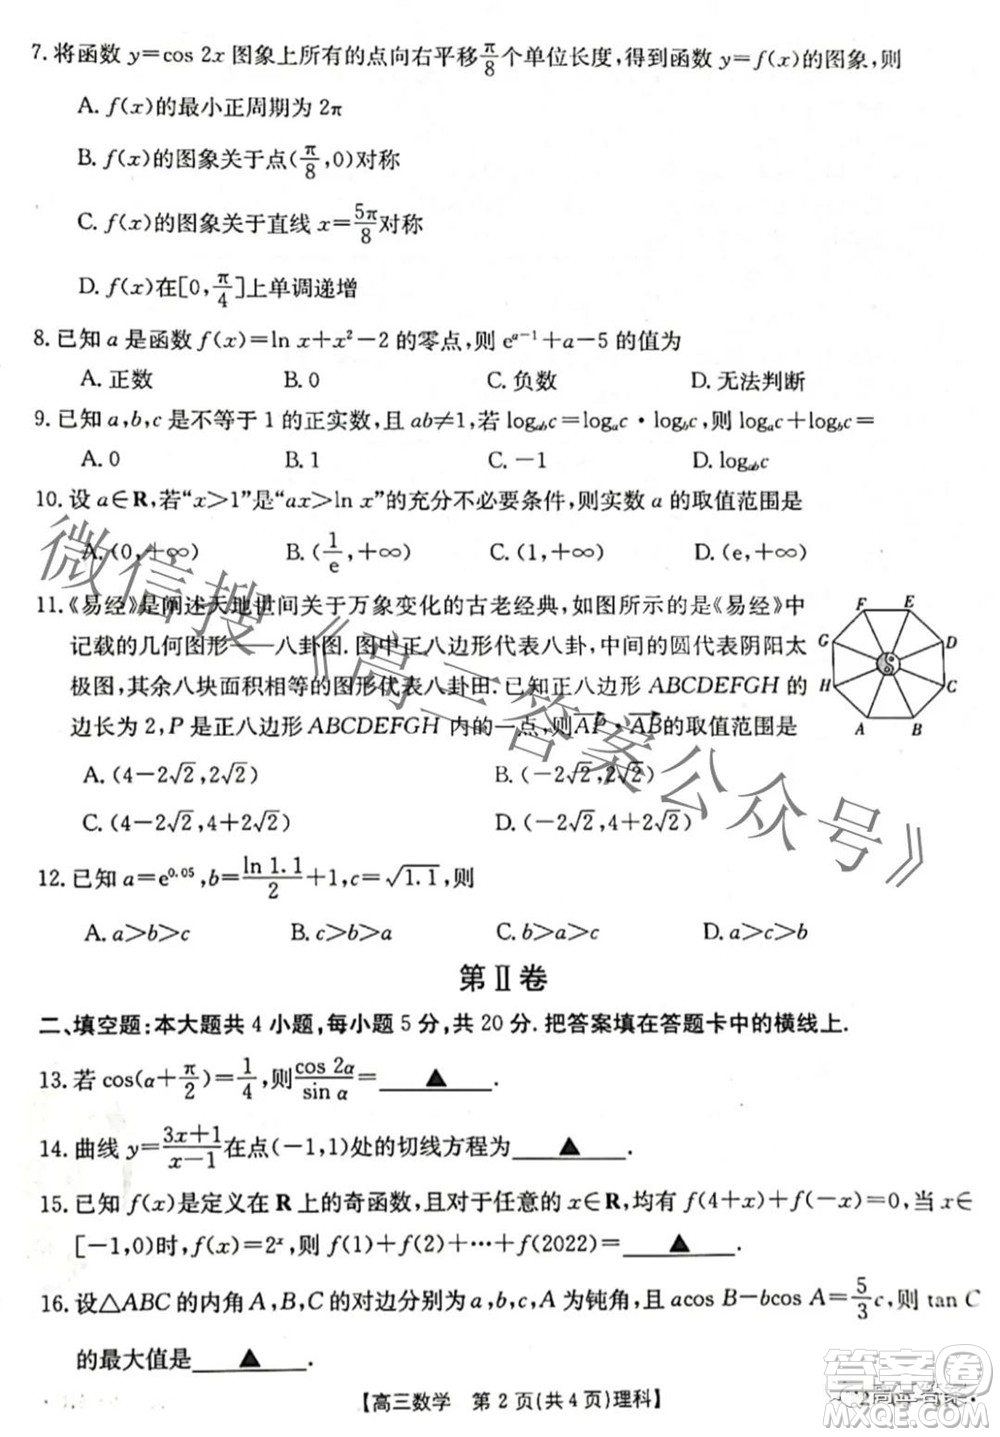 7.将函数 y=cos 2x 图象上所有的点向右平移π/8个单位长度,得到函数 y=f(x)的图象,则
A. f(x)的最小正周期为 2π
B. f(x)的图象关于点(π/8,0)对称
C. f(x)的图象关于直线 x=5π/8对称
D. f(x)在[0,π/4]上单调递增
8.已知 a 是函数 f(x)=ln x+x²-2 的零点,则 eᵃ⁻¹+a-5 的值为
A.正数 B.0 C.负数 D.无法判断
9.已知 a,b,c 是不等于 1 的正实数,且 ab≠1,若 log_{ab}c=log_a c·log_b c,则 log_a c+log_b c=
A.0 B.1 C.-1 D.log_{ab}c
10.设 a∈R,若“x>1”是“ax>ln x”的充分不必要条件,则实数 a 的取值范围是
A.(0,+∞) B.(1/e,+∞) C.(1,+∞) D.(e,+∞)
11.《易经》是阐述天地世间关于万象变化的古老经典,如图所示的是《易经》中
记载的几何图形——八卦图.图中正八边形代表八卦,中间的圆代表阴阳太
极图,其余八块面积相等的图形代表八卦田.已知正八边形 ABCDEFGH 的
边长为 2,P 是正八边形 ABCDEFGH 内的一点,则AP·AB的取值范围是
F E
G D
H C
A B
A.(4-2√2,2√2) B.(-2√2,2√2)
C.(4-2√2,4+2√2) D.(-2√2,4+2√2)
12.已知 a=e^{0.05},b=ln 1.1/2+1,c=√1.1,则
A.a>b>c B.c>b>a C.b>a>c D.a>c>b
第Ⅱ卷
二、填空题:本大题共 4 小题,每小题 5 分,共 20 分.把答案填在答题卡中的横线上.
13.若 cos(α+π/2)=1/4,则cos 2α/sin α= ▲ .
14.曲线 y=3x+1/x-1在点(-1,1)处的切线方程为 ▲ .
15.已知 f(x)是定义在 R 上的奇函数,且对于任意的 x∈R,均有 f(4+x)+f(-x)=0,当 x∈
[-1,0)时,f(x)=2ˣ,则 f(1)+f(2)+…+f(2022)= ▲ .
16.设△ABC 的内角 A,B,C 的对边分别为 a,b,c,A 为钝角,且 acos B-bcos A=5/3c,则 tan C
的最大值是 ▲ .
【高三数学 第 2 页(共 4 页)理科】
微信搜《高三答案公众号》
答案圈
MXQE.COM